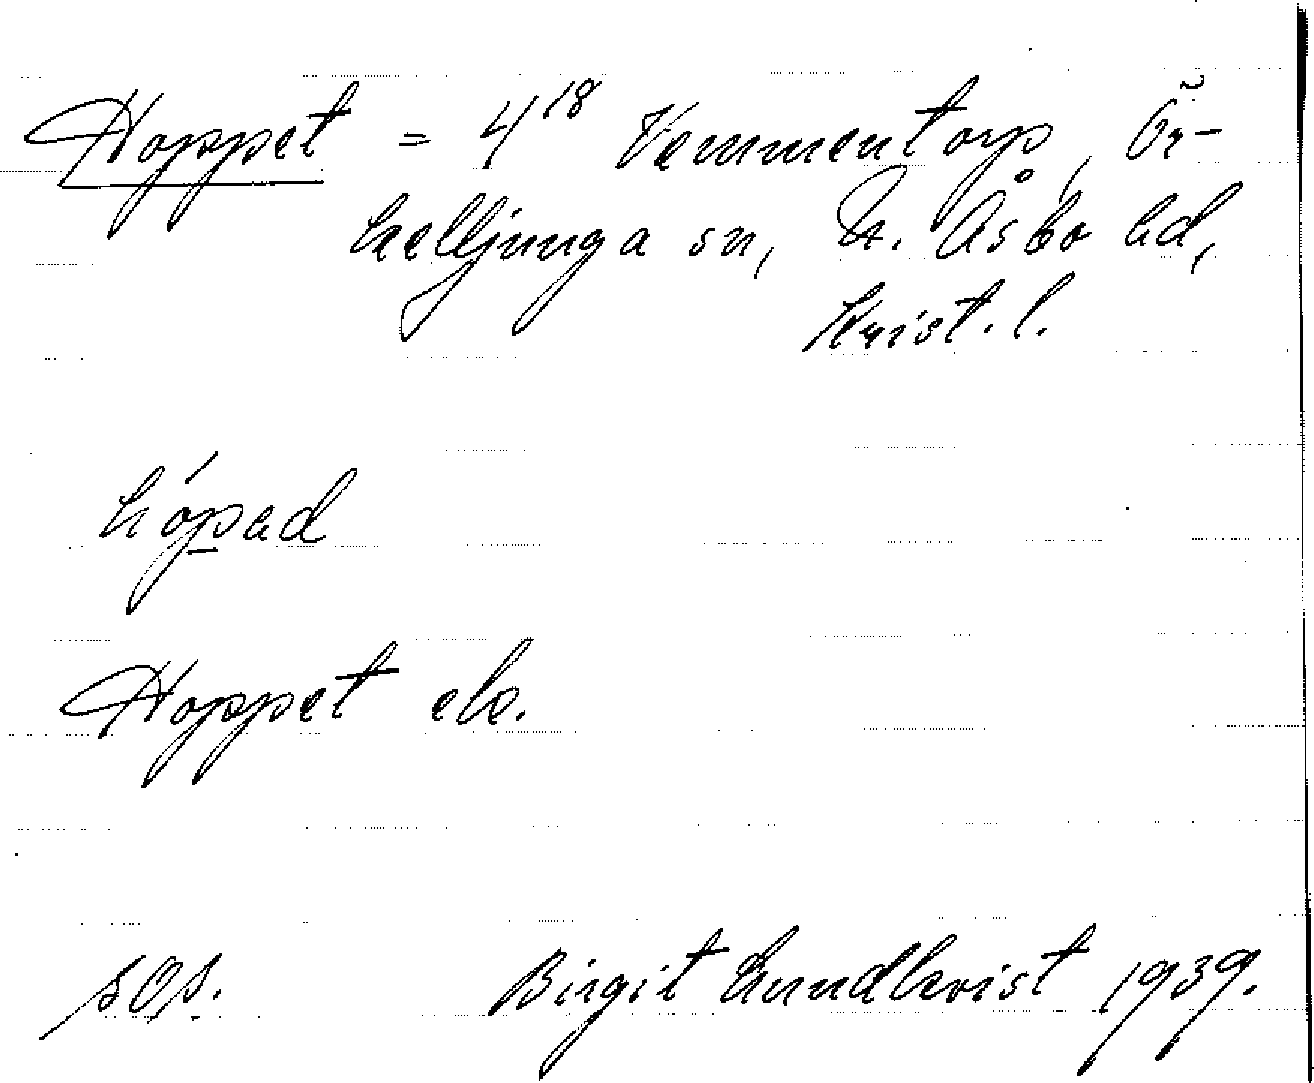 Hoppet = 4¹⁸ Vemmentorp, Ör-
kelljunga sn, N. Åsbo hd,
Krist. l.
hópad
Hoppet ek.
sOs.
Birgit Lundkvist 1939.